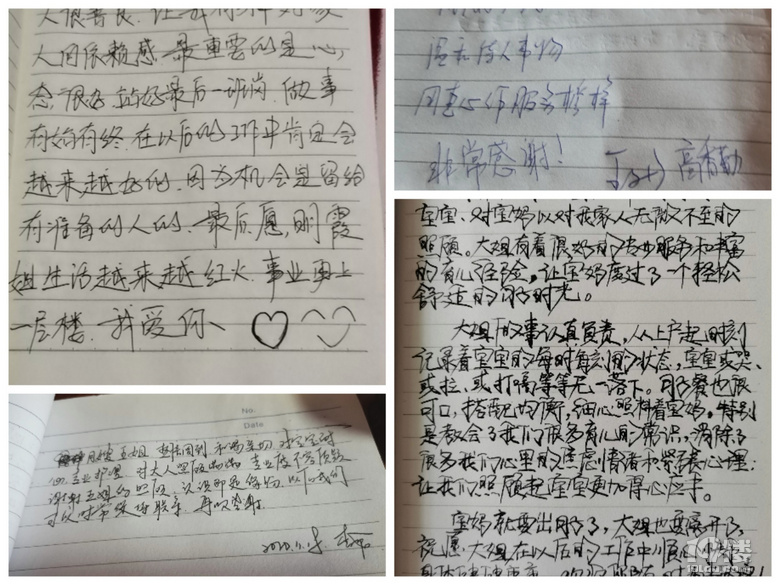 人依赖感.最重要的是心
态很好.站好最后一班岗.做事
有始有终.在以后的工作中肯定会
越来越好的.因为机会是留给
有准备的人的.最后愿,刚霞
姐生活越来越红火.事业更上
一层楼.我爱你、
温和待人事物
用真心作服务榜样
非常感谢!
高香勤
宝宝、对宝妈以对我家人无微不至的
照顾。大姐有着很好的专业服务和丰富
的育儿经验。让宝妈度过了一个轻松
舒适的月子时光。
大姐做事认真负责,从上户起时刻
记录着宝宝的每时每刻的状态,宝宝或哭、
或拉、或打嗝等等无一落下。月子餐也很
可口,搭配均衡,细心照料着宝妈。特别
是教会了我们很多育儿的常识,消除了
很多我们心里的焦虑情绪和紧张心理.
让我们照顾起宝宝更加得心应手。
宝妈就要出月子了,大姐也要离开了,
祝愿大姐在以后的工作中顺心
No.
Date
心专业护理 对大人照顾
谢谢王姐的照顾
可以时常继续联系 再次感谢
19楼
19lou.com